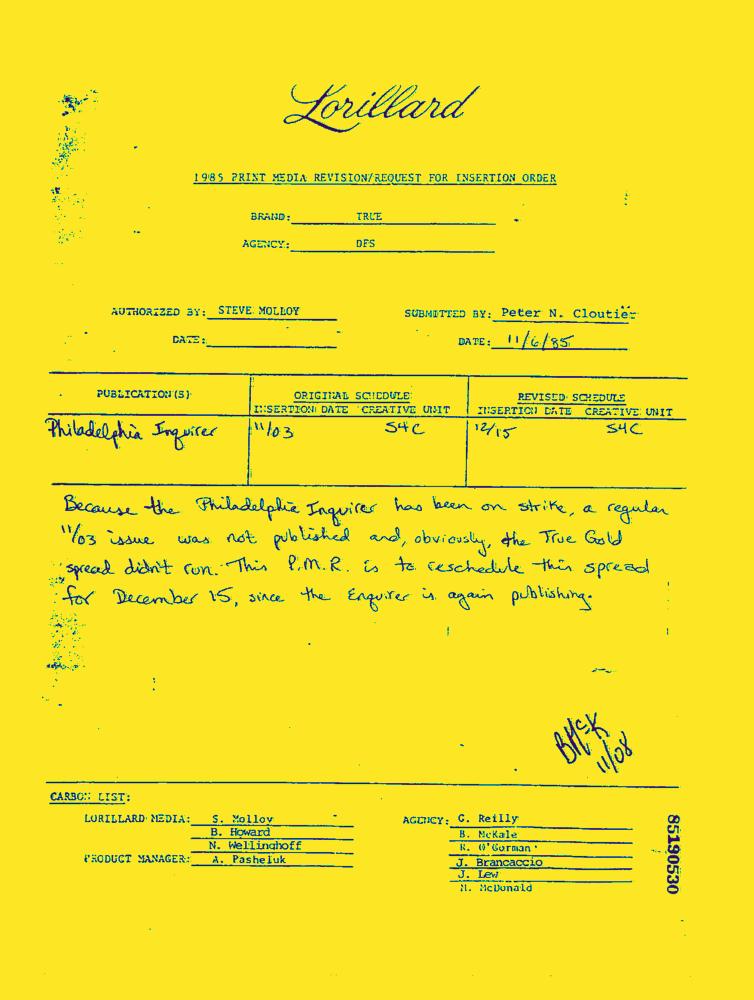 Lorillard
1985 PRINT MEDIA REVISION/REQUEST FOR INSERTION ORDER
BRAND: TRUE
AGENCY: DFS
AUTHORIZED BY: STEVE MOLLOY SUBMITTED BY: Peter N. Cloutier
DATE: DATE: 11/6/85
PUBLICATION(S) ORIGINAL SCHEDULE REVISED SCHEDULE
INSERTION DATE CREATIVE UNIT INSERTION DATE CREATIVE UNIT
Philadelphia Inquirer 11/03 S4C 12/15 S4C
Because the Philadelphia Inquirer has been on strike, a regular
11/03 issue was not published and, obviously, the True Gold
spread didn't run. This P.M.R. is to reschedule this spread
for December 15, since the Enquirer is again publishing.
BMcK
11/08
CARBON LIST:
LORILLARD MEDIA: S. Molloy AGENCY: G. Reilly
B. Howard B. McKale
N. Wellinghoff R. O'Gorman
PRODUCT MANAGER: A. Pasheluk J. Brancaccio
J. Lew
M. McDonald
85190530